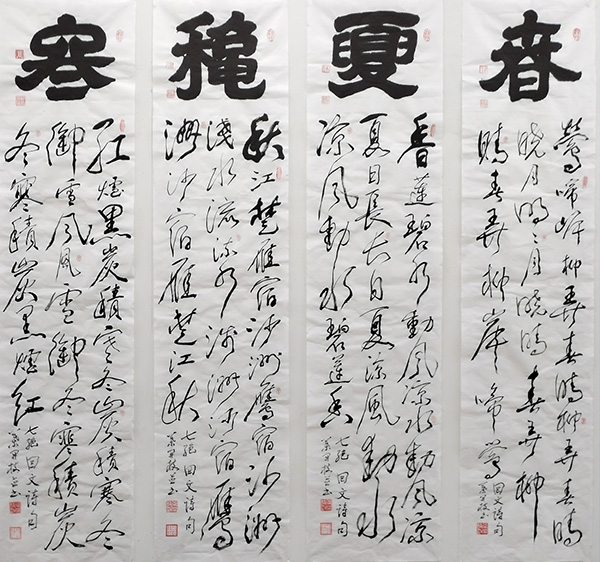 春
鶯啼岸柳弄春晴柳弄春晴
曉月明々月曉晴春弄柳
晴春弄柳岸啼鶯
回文詩句
夏
香蓮碧水動風涼水動風涼
夏日長長日夏涼風動水
涼風動水碧蓮香
七絕回文詩句
穐
秋江楚雁宿沙洲鴈宿沙洲
淺水流流水淺洲沙宿鴈
洲沙宿雁楚江秋
七絕回文詩句
紅爐黑炭積寒冬炭積寒冬
御雪風風雪御冬寒積炭
冬寒積炭黑爐紅
七絕回文詩句